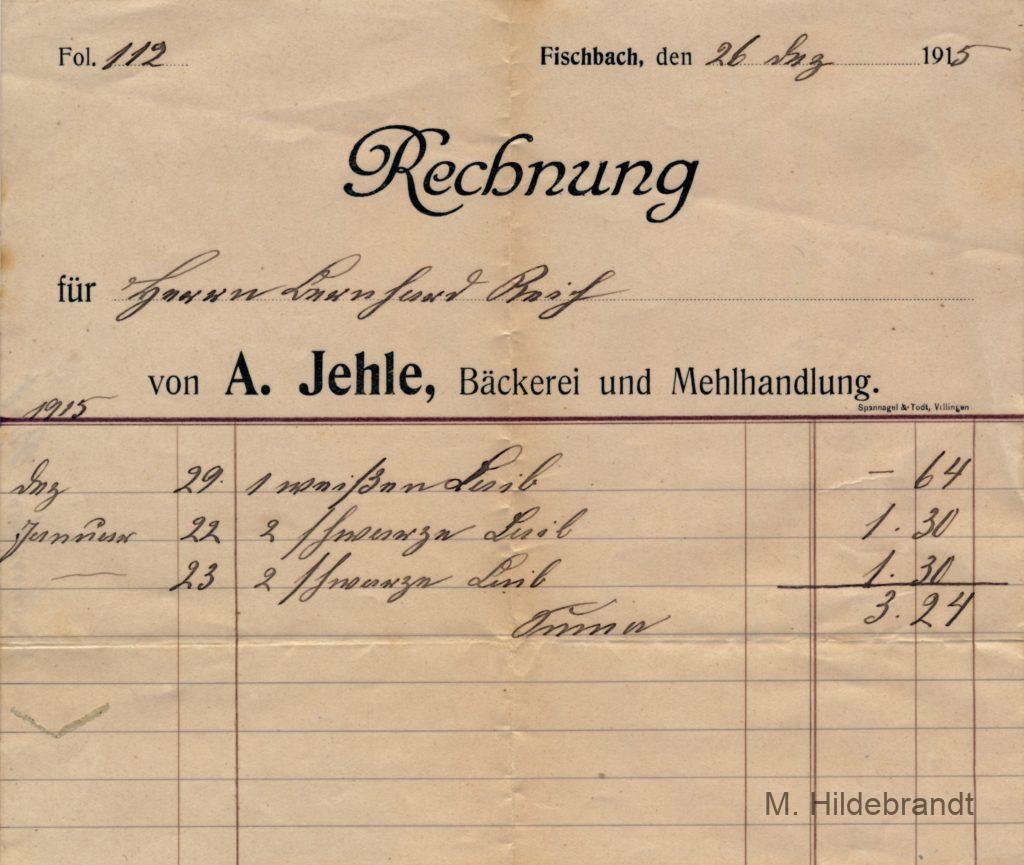 Fol. 112 Fischbach, den 26 Dez 1915
Rechnung
für Herrn Bernhard Reich
von A. Jehle, Bäckerei und Mehlhandlung.
Spannagel & Todt, Villingen
1915
Dez 29. 1 weißen Laib – 64
Januar 22 2 schwarze Laib 1. 30
— 23 2 schwarze Laib 1. 30
Suma 3. 24
M. Hildebrandt